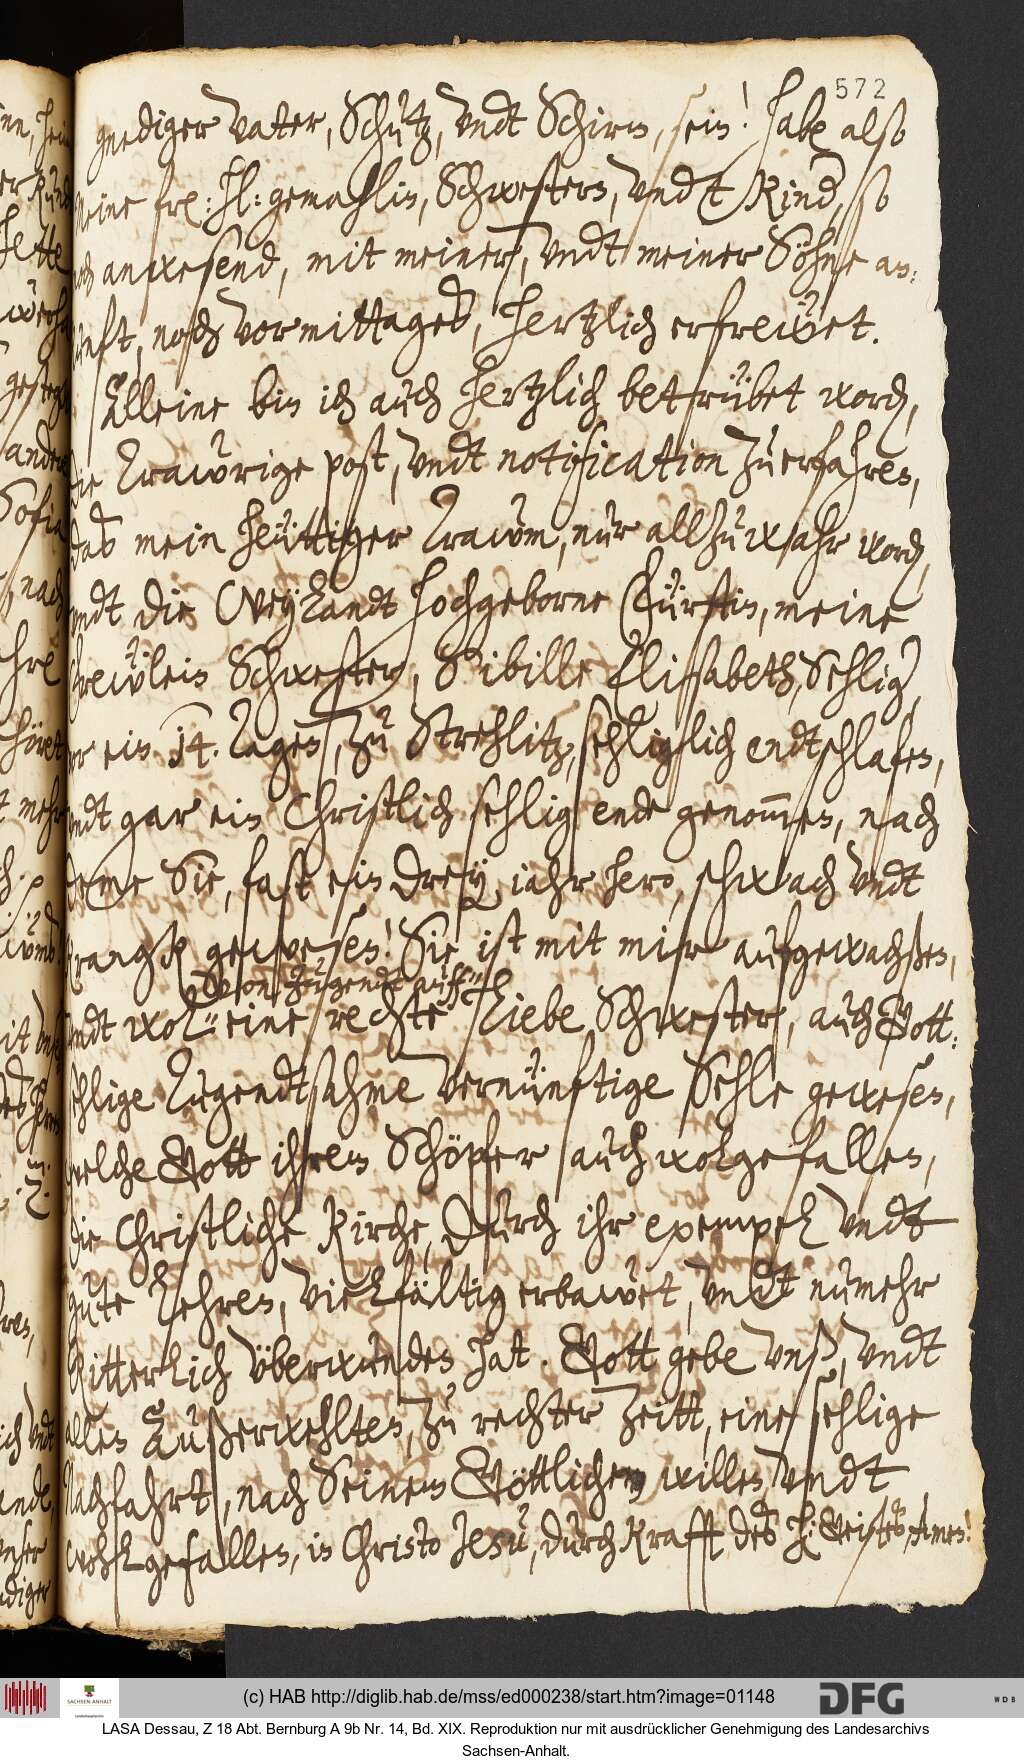 572
gnediger Vater, Schütz, vndt Schirm, sein! Habe also
Meine frl: hl: gemahlin, Schwestern, vndt Kind, so
noch anwesend, mit meiner, vndt meiner Söhne an:
kunft, noch vormittages, hertzlich erfrewet.
Alleine bin ich auch hertzlich betrübet word,
die Trawrige post, vndt notification zu erfahren,
das mein heüttiger Trawm, nur allzuwahr word,
vndt die Weylandt hochgeborne Fürstin, meine
Frewlein Schwester, Sibille Elisabeth, Sehlig,
vor ein 14. Tagen, zu Strehlitz, sehliglich endtschlafen,
vndt gar ein Christlich sehlig ende genommen, nach
deme Sie, fast ein drey iahr hero, schwach vndt
kranck gewesen! Sie ist mit mir aufgewachßen,
von Jugendt auff
vndt wol eine rechte liebe Schwester, auch Gott:
sehlige Tugendtsahme vernünftige Sehle gewesen,
welche Gott ihrem Schöpfer auch wolgefallen,
die Christliche Kirche, durch ihr exempel vndt
gute Lehren, vielfältig erbawet, vndt numehr
Ritterlich vberwunden hat. Gott gebe vnß, vndt
allen Außerwehlten, zu rechter Zeitt, eine sehlige
Nachfahrt, nach Seinem Göttlichen willen vndt
wohlgefallen, in Christo Jesu, durch Krafft des H: Geistes, Amen!
(c) HAB http://diglib.hab.de/mss/ed000238/start.htm?image=01148
DFG
WDB
SACHSEN-ANHALT
LASA Dessau, Z 18 Abt. Bernburg A 9b Nr. 14, Bd. XIX. Reproduktion nur mit ausdrücklicher Genehmigung des Landesarchivs
Sachsen-Anhalt.